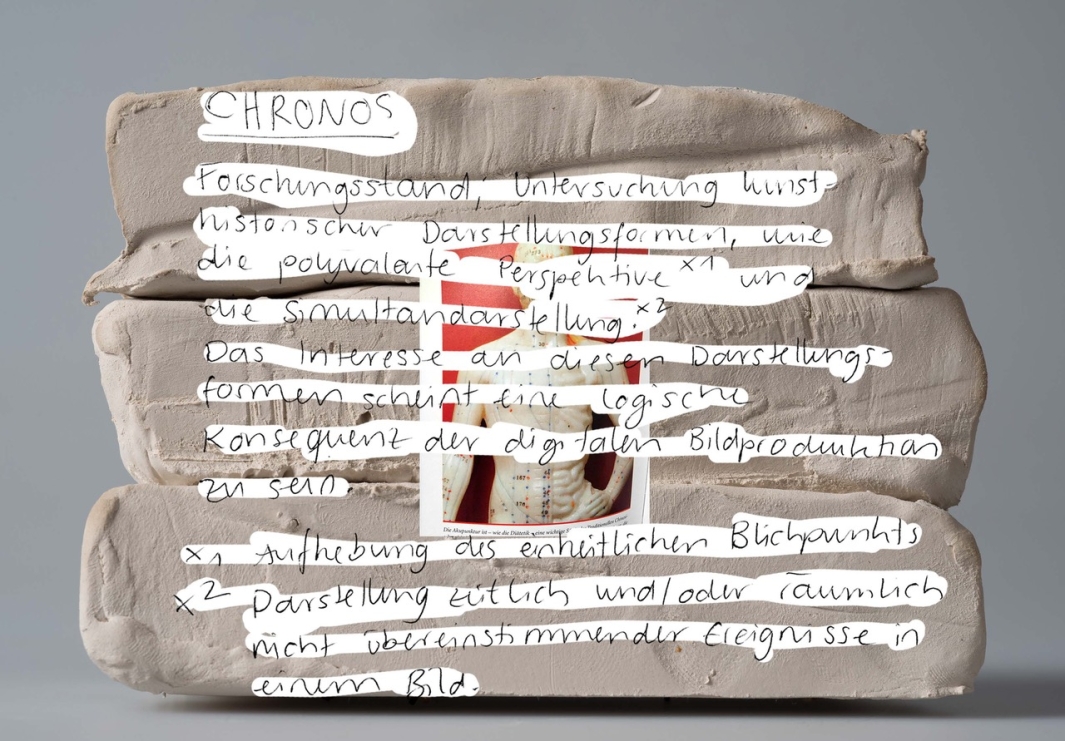 CHRONOS
Forschungsstand, Untersuchung kunst-
historischer Darstellungsformen, wie
die polyvalente Perspektive x1 und
die Simultandarstellung. x2
Das Interesse an diesen Darstellungs-
formen scheint eine logische
Konsequenz der digitalen Bildproduktion
zu sein.
Die Akupunktur ist – wie die Diätetik – eine wichtige
x1 Aufhebung des einheitlichen Blickpunkts
x2 Darstellung zeitlich und/oder räumlich
nicht übereinstimmender Ereignisse in
einem Bild.